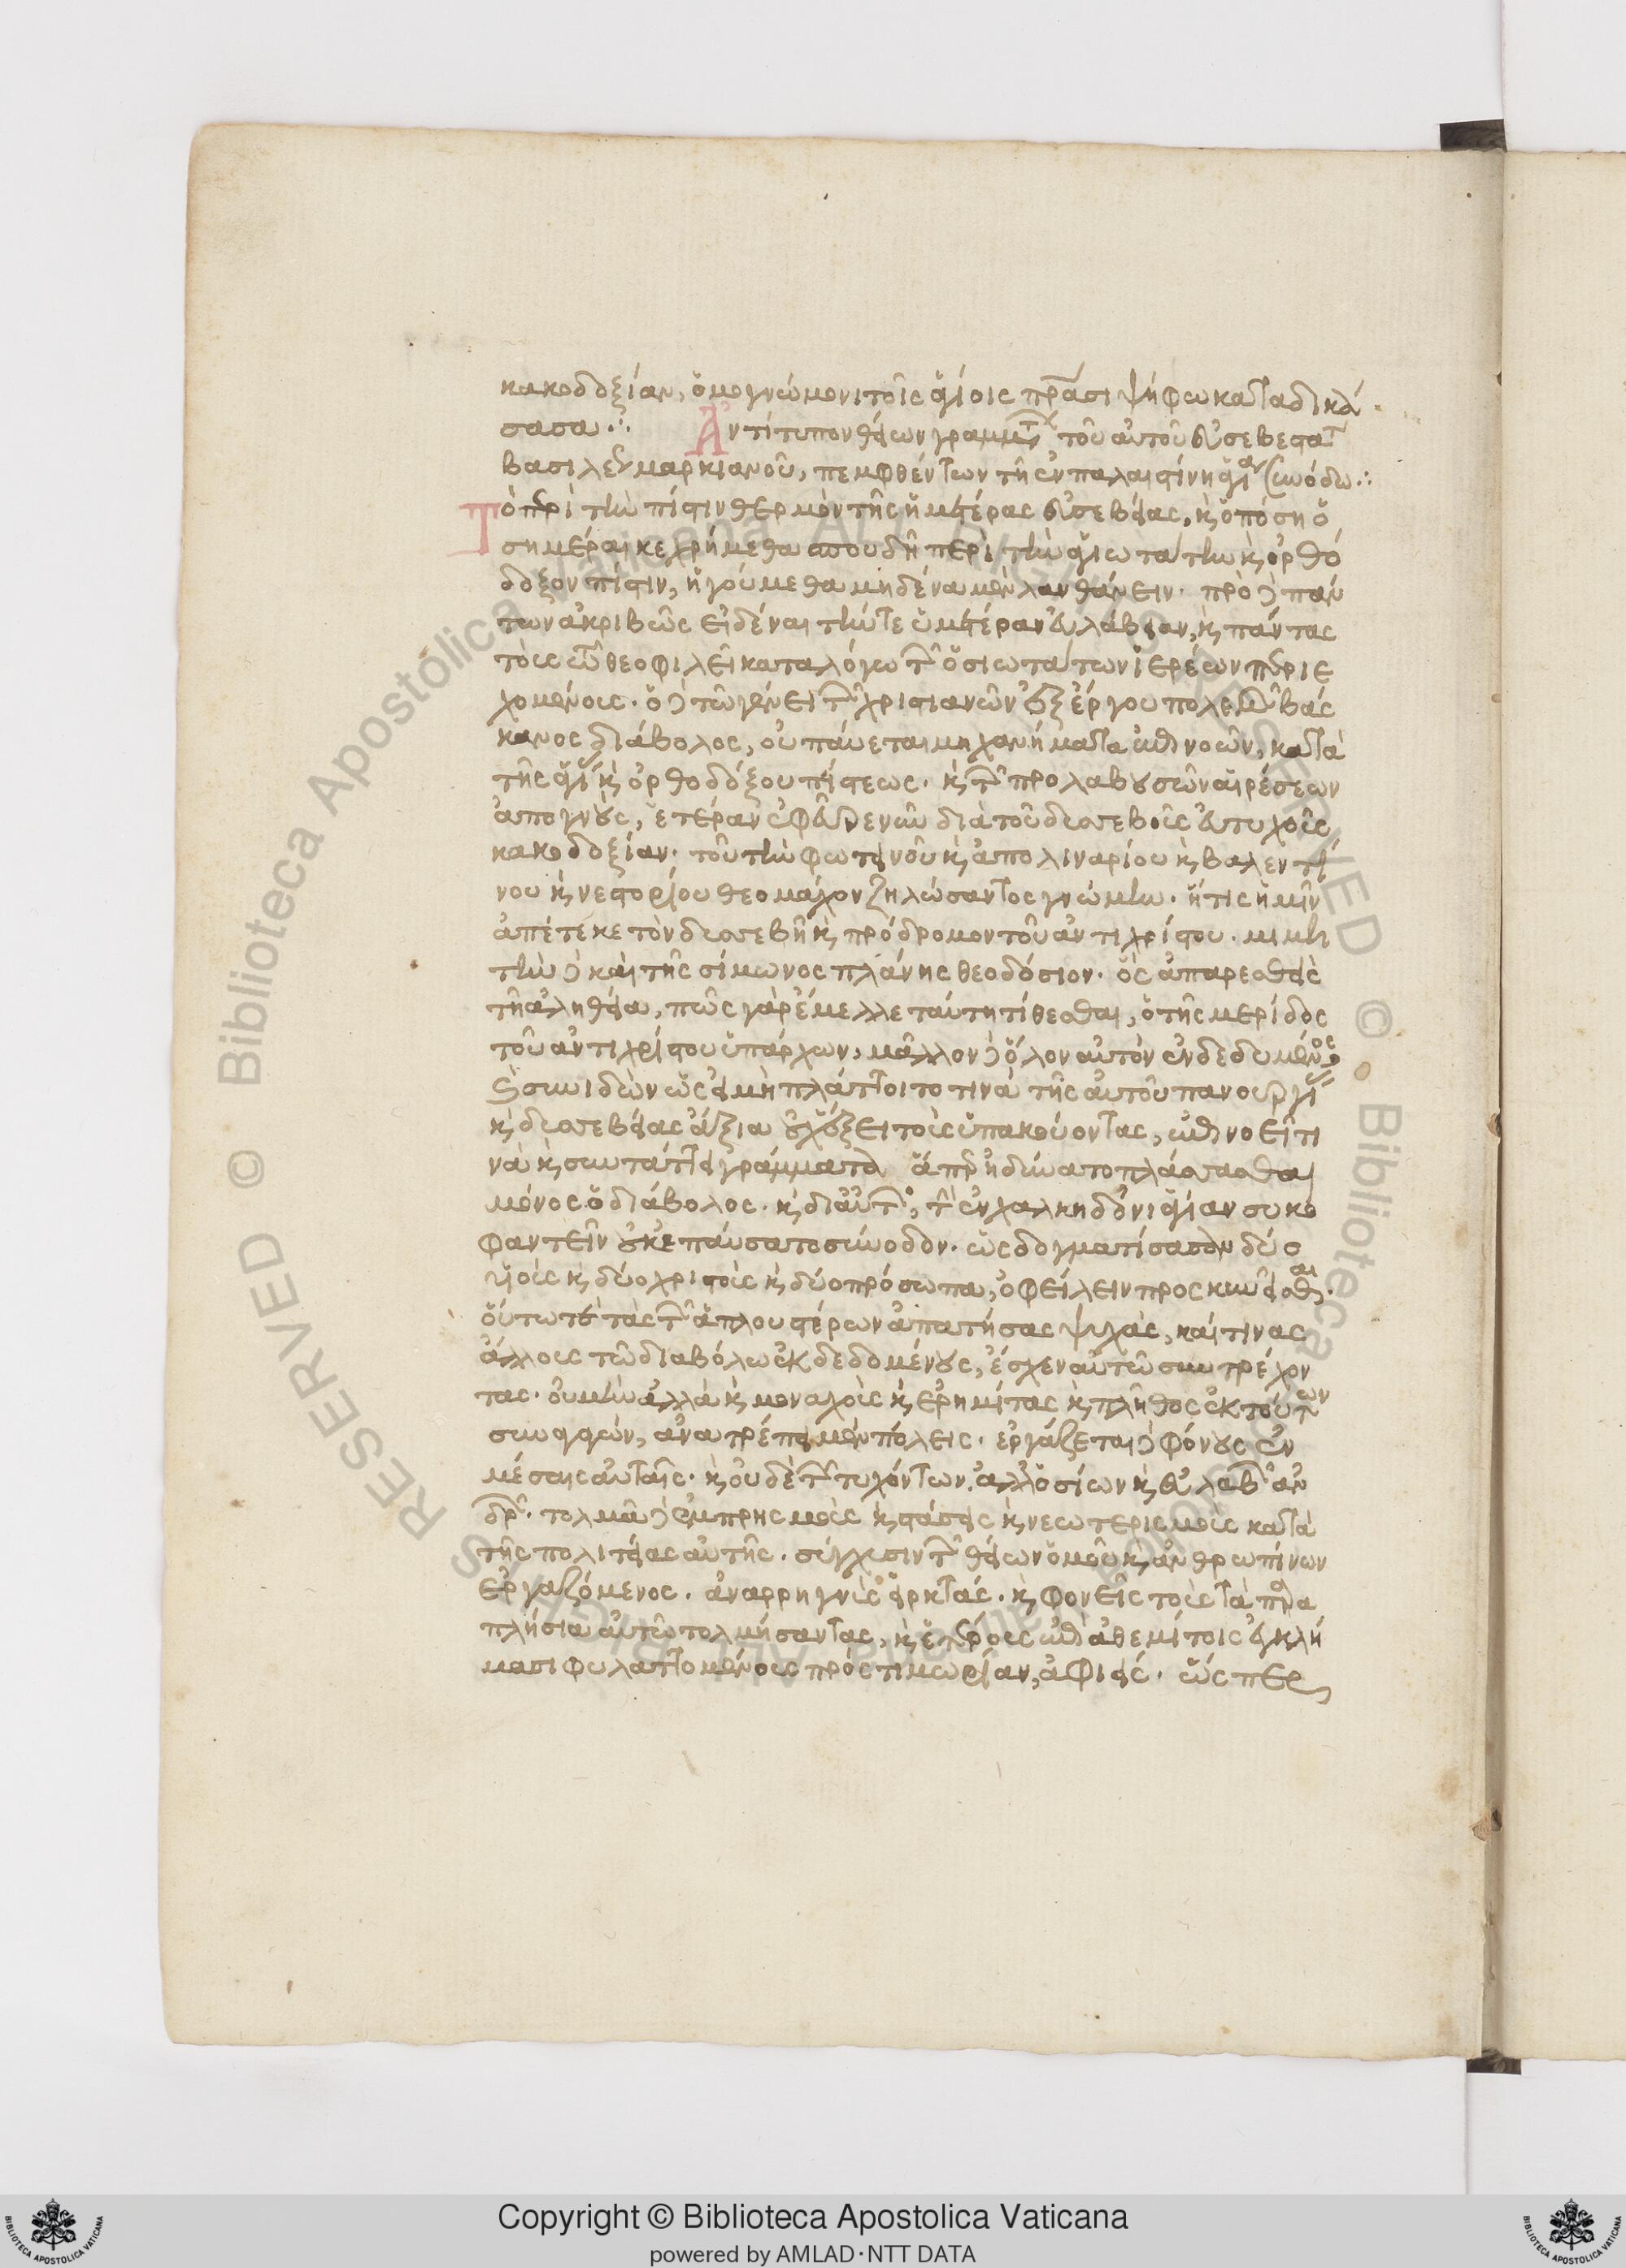 κακοδοξίαν, ὁμογνώμονι τοῖς ἁγίοις πατράσι ψήφω καταδικά
σασα ∴ Ἀντίτυπον θείων γραμμάτων τοῦ αὐτοῦ εὐσεβεστάτου
βασιλέως μαρκιανοῦ, πεμφθέντων τῇ ἐν παλαιστίνη ἁγία συνόδω ∴
Τὸ περὶ τὴν πίστιν θερμὸν τῆς ἡμετέρας εὐσεβείας, κ ὁπόση ὁ
σημέραι κεχρήμεθα σπουδῆ περὶ τὴν ἁγιωτάτην κ ὀρθό
δοξον πίστιν, ἡγούμεθα μηδένα μὲν λανθάνειν. πρὸ δὲ πάν
των ἀκριβῶς εἰδέναι τήν τε ὑμετέραν εὐλάβειαν, κ πάντας
τοὺς ἐν τῶ θεοφιλεῖ καταλόγω τῶν ὁσιωτάτων ἱερέων περιε
χομένους. ὁ δὲ τῶ γένει τῶν χριστιανῶν ἐξ ἔργου πολεμῶν βάς
κανος διάβολος, οὐ παύεται μηχανήματα ἐπινοῶν, κατὰ
τῆς ἁγίας κ ὀρθοδόξου πίστεως. κ τῶν προλαβουσῶν αἱρέσεων
ἀπογνοὺς, ἑτέραν ἐφεῦρεν διὰ τοῦ δυσσεβοῦς εὐτυχοῦς
κακοδοξίαν. τοῦ τὴν φωτεινοῦ κ ἀπολιναρίου κ βαλεντί
νου κ νεστορίου θεομάχον ζηλώσαντος γνώμην. ἥτις ἡμῖν
ἀπέτεκε τὸν δυσσεβῆ κ πρόδρομον τοῦ ἀντιχρίστου. μιμη
τὴν δὲ καὶ τῆς σίμωνος πλάνης θεοδόσιον. ὃς ἀπαρεσθεὶς
τῆ ἀληθεία, πῶς γὰρ ἔμελλε ταύτη τίθεσθαι, ὁ τῆς μερίδος
τοῦ ἀντιχρίστου ὑπάρχων, μᾶλλον δὲ ὅλον αὐτὸν ἐνδεδυμένος
κ συνιδὼν ὡς εἰ μὴ πλάττοιτο τινὰ τῆς αὐτοῦ πανουργίας
κ δυσσεβείας ἄξια οὐχ ἕξει τοὺς ὑπακούοντας, ἐπινοεῖ τι
νὰ κ συντάττει γράμματα ἅπερ ἠδύνατο πλάσασθαι
μόνος ὁ διάβολος. κ δι αὐτῶν, τὴν ἐν χαλκηδόνι ἁγίαν συκο
φαντεῖν οὐκ ἐπαύσατο σύνοδον. ὡς δογματίσασαν δύο
υἱοὺς κ δύο χριστοὺς κ δύο πρόσωπα, ὀφείλειν προσκυνεῖσθαι.
οὕτω τε τὰς τῶν ἁπλουστέρων ἀπατήσας ψυχὰς, καί τινας
ἄλλους τῶ διαβόλω ἐκδεδομένους, ἔσχεν αὐτῶ συντρέχον
τας. οὐ μὴν ἀλλὰ κ μοναχοὺς κ ἐρημίτας κ πλῆθος ἐκ τούτων
συναγαγὼν, ἀνατρέπει μὲν πόλεις. ἐργάζεται δὲ φόνους ἐν
μέσαις αὐταῖς. κ οὐδὲ τῶν τυχόντων, ἀλλ ὁσίων κ εὐλαβῶν ἀν
δρῶν. τολμᾶ δὲ ἐμπρησμοὺς κ στάσεις κ νεωτερισμοὺς κατὰ
τῆς πολιτείας αὐτῆς. σύγχυσιν τῶν θείων ὁμοῦ κ ἀνθρωπίνων
ἐργαζόμενος. ἀναρρηγνὺς εἱρκτάς. κ φονεῖς τοὺς τὰ παρα
πλήσια αὐτῶ τολμήσαντας, κ ἑτέρους ἐπὶ ἀθεμίτοις ἐγκλή
μασι φυλαττομένους πρὸς τιμωρίαν, ἀφιείς. ὥσπερ
RESERVED © Biblioteca Apostolica Vaticana
Copyright © Biblioteca Apostolica Vaticana
powered by AMLAD·NTT DATA